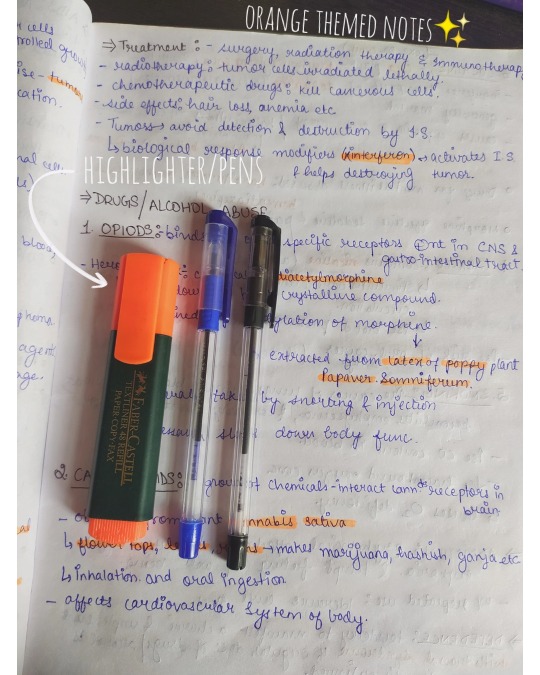 ORANGE THEMED NOTES
⇒ Treatment :- surgery, radiation therapy & Immunotherapy
- radiotherapy: tumor cells irradiated lethally.
- chemotherapeutic drugs: kill cancerous cells.
- side effects: hair loss, anemia etc
- Tumors → avoid detection & destruction by I.S.
↳ biological response modifiers (αinterferon) → activates I.S
& helps destroying tumor.
HIGHLIGHTER/PENS
⇒ DRUGS/ALCOHOL ABUSE
1. OPIODS:- binds specific receptors in CNS &
gastro intestinal tract.
diacetylmorphine
crystalline compound.
of morphine.
↓
extracted from latex of poppy plant
Papaver Somniferum.
by snorting & injection
down body func.
2. group of chemicals - interact receptors in
brain
cannabis sativa
↳ flower tops, → makes marijuana, hashish, ganja etc
↳ inhalation and oral ingestion
- affects cardiovascular system of body.
FABER-CASTELL
TEXTLINER 48 REFILL
PAPER·COPY·FAX
cells
tumor
cation.
blood,
agent